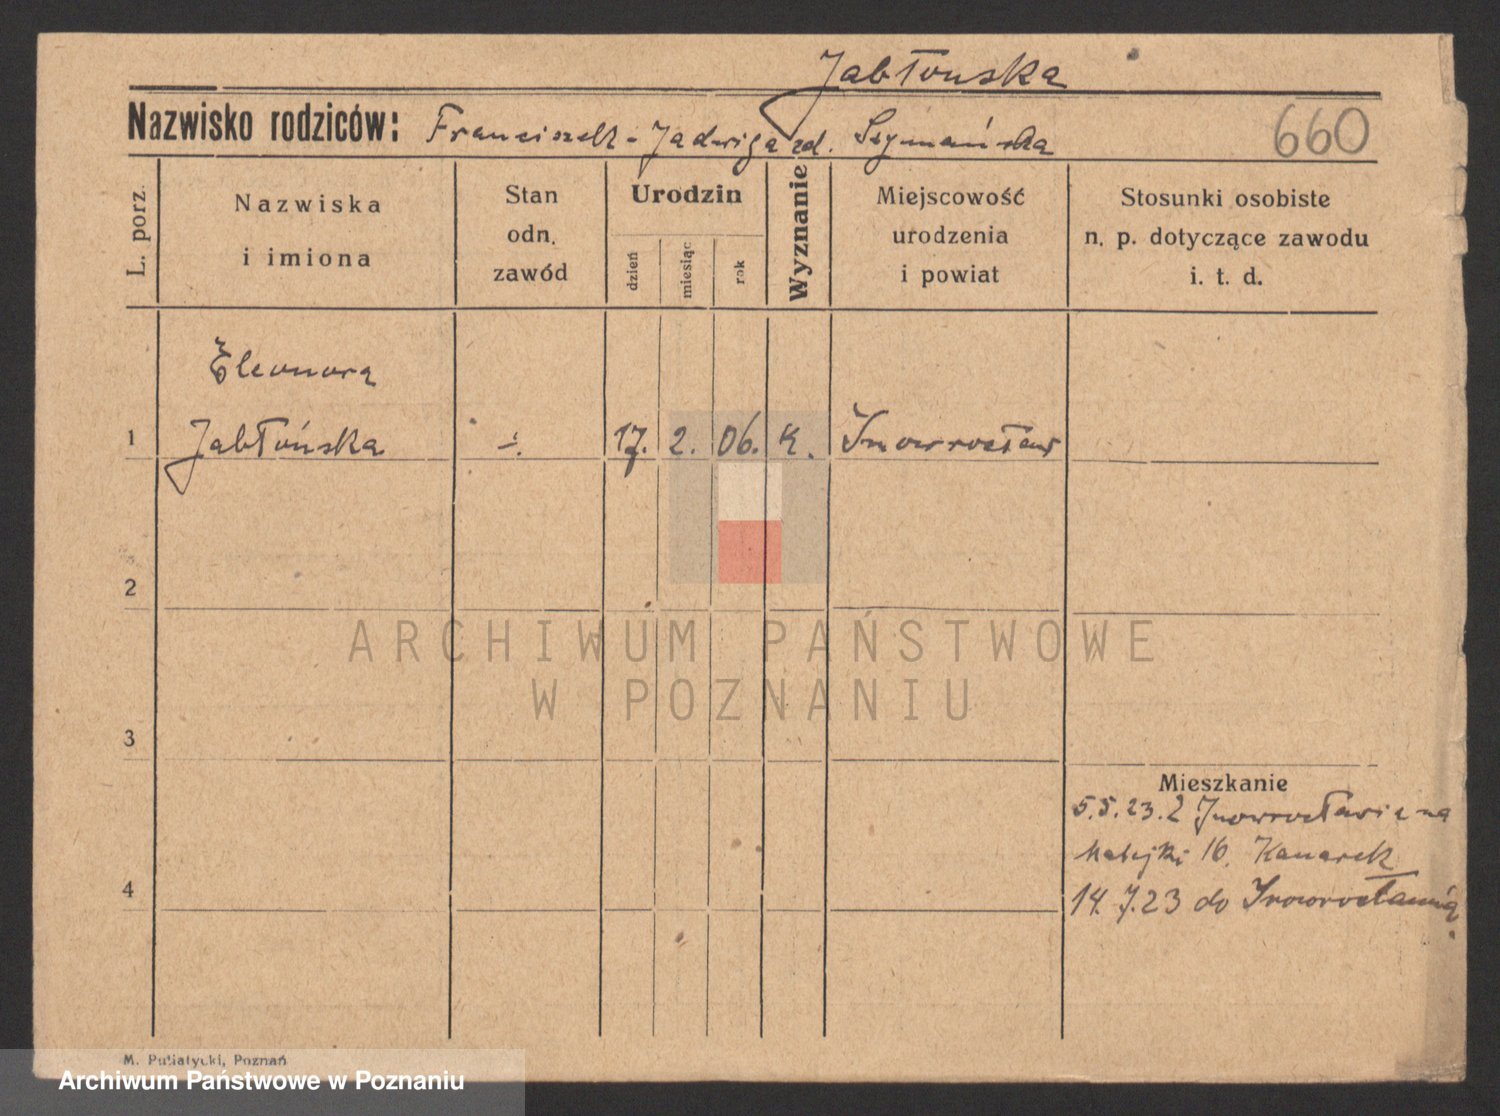 Jabłonska
Nazwisko rodziców: Franciszek - Jadwiga zd. Szymańska
660
L. porz.
Nazwiska
i imiona
Stan
odn.
zawód
Urodzin
dzień
miesiąc
rok
Wyznanie
Miejscowość
urodzenia
i powiat
Stosunki osobiste
n. p. dotyczące zawodu
i. t. d.
Eleonora
1 Jabłońska -/. 17. 2. 06. K. Inowrocław
2
ARCHIWUM PAŃSTWOWE
W POZNANIU
3
Mieszkanie
5.5.23. z Inowrocławia na
Matejki 16. Kanarek
4
14.7.23 do Inowrocławia
M. Putiatycki, Poznań
Archiwum Państwowe w Poznaniu